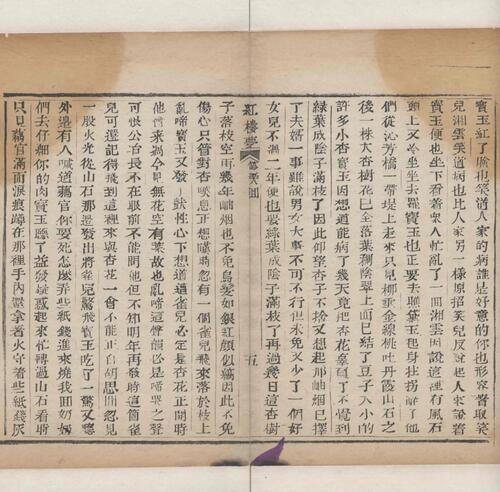 寳玉紅了臉也笑道人家的病誰是好意的你也形容着取笑
兒湘雲笑道病也比人家另一樣原招笑兒反說起人來說着
寳玉便也坐下看着衆人忙亂了一囬湘雲因說這裡有風石
頭上又冷坐坐去罷寳玉也正要去瞧黛玉起身拄拐辭了他
們從沁芳橋一帶堤上走來只見柳垂金線桃吐丹霞山石之
後一株大杏樹花已全落葉稠陰翠上面已結了豆子大小的
許多小杏寳玉因想道能病了幾天竟把杏花辜負了不覺到
綠葉成陰子滿枝了因此仰望杏子不捨又想起邢岫烟已擇
了夫婿一事雖說男女大事不可不行但未免又少了一個好
女兒不過二年便也要綠葉成陰子滿枝了再過幾日這杏樹
紅樓夢 第 囬 五
子落枝空再幾年岫烟也不免烏髮如銀紅顔似縞因此不免
傷心只管對杏嘆息正想嘆時忽有一個雀兒飛來落於枝上
亂啼寳玉又發了獃性心下想道這雀兒必定是杏花正開時
他曾來過今見無花空有葉故也亂啼這聲韻必是啼哭之聲
可恨公冶長不在眼前不能問他但不知明年再發時這個雀
兒可還記得飛到這裡來與杏花一會不能正自胡思間忽見
一股火光從山石那邊發出將雀兒驚飛寳玉吃了一驚又聽
外邊有人喊道藕官你要死怎麽弄些紙錢進來燒我囬奶奶
們去仔細你的肉寳玉聽了益發疑惑起來忙轉過山石看時
只見藕官滿面淚痕蹲在那裡手內還拿着火守着些紙錢灰